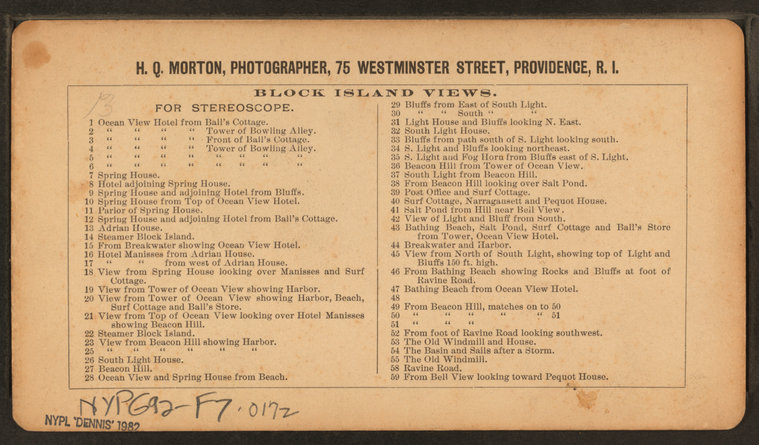 H. Q. MORTON, PHOTOGRAPHER, 75 WESTMINSTER STREET, PROVIDENCE, R. I.
BLOCK ISLAND VIEWS.
FOR STEREOSCOPE.
1 Ocean View Hotel from Ball's Cottage.
2 " " " " Tower of Bowling Alley.
3 " " " " Front of Ball's Cottage.
4 " " " " Tower of Bowling Alley.
5 " " " " " " " "
6 " " " " " " " "
7 Spring House.
8 Hotel adjoining Spring House.
9 Spring House and adjoining Hotel from Bluffs.
10 Spring House from Top of Ocean View Hotel.
11 Parlor of Spring House.
12 Spring House and adjoining Hotel from Ball's Cottage.
13 Adrian House.
14 Steamer Block Island.
15 From Breakwater showing Ocean View Hotel.
16 Hotel Manisses from Adrian House.
17 " " from west of Adrian House.
18 View from Spring House looking over Manisses and Surf
Cottage.
19 View from Tower of Ocean View showing Harbor.
20 View from Tower of Ocean View showing Harbor, Beach,
Surf Cottage and Ball's Store.
21 View from Top of Ocean View looking over Hotel Manisses
showing Beacon Hill.
22 Steamer Block Island.
23 View from Beacon Hill showing Harbor.
25 " " " " " "
26 South Light House.
27 Beacon Hill.
28 Ocean View and Spring House from Beach.
29 Bluffs from East of South Light.
30 " " South " "
31 Light House and Bluffs looking N. East.
32 South Light House.
33 Bluffs from path south of S. Light looking south.
34 S. Light and Bluffs looking northeast.
35 S. Light and Fog Horn from Bluffs east of S. Light.
36 Beacon Hill from Tower of Ocean View.
37 South Light from Beacon Hill.
38 From Beacon Hill looking over Salt Pond.
39 Post Office and Surf Cottage.
40 Surf Cottage, Narragansett and Pequot House.
41 Salt Pond from Hill near Bell View.
42 View of Light and Bluff from South.
43 Bathing Beach, Salt Pond, Surf Cottage and Ball's Store
from Tower, Ocean View Hotel.
44 Breakwater and Harbor.
45 View from North of South Light, showing top of Light and
Bluffs 150 ft. high.
46 From Bathing Beach showing Rocks and Bluffs at foot of
Ravine Road.
47 Bathing Beach from Ocean View Hotel.
48
49 From Beacon Hill, matches on to 50
50 " " " " " 51
51 " " "
52 From foot of Ravine Road looking southwest.
53 The Old Windmill and House.
54 The Basin and Sails after a Storm.
55 The Old Windmill.
58 Ravine Road.
59 From Bell View looking toward Pequot House.
NYPG92-F7.0172
NYPL "DENNIS" 1982